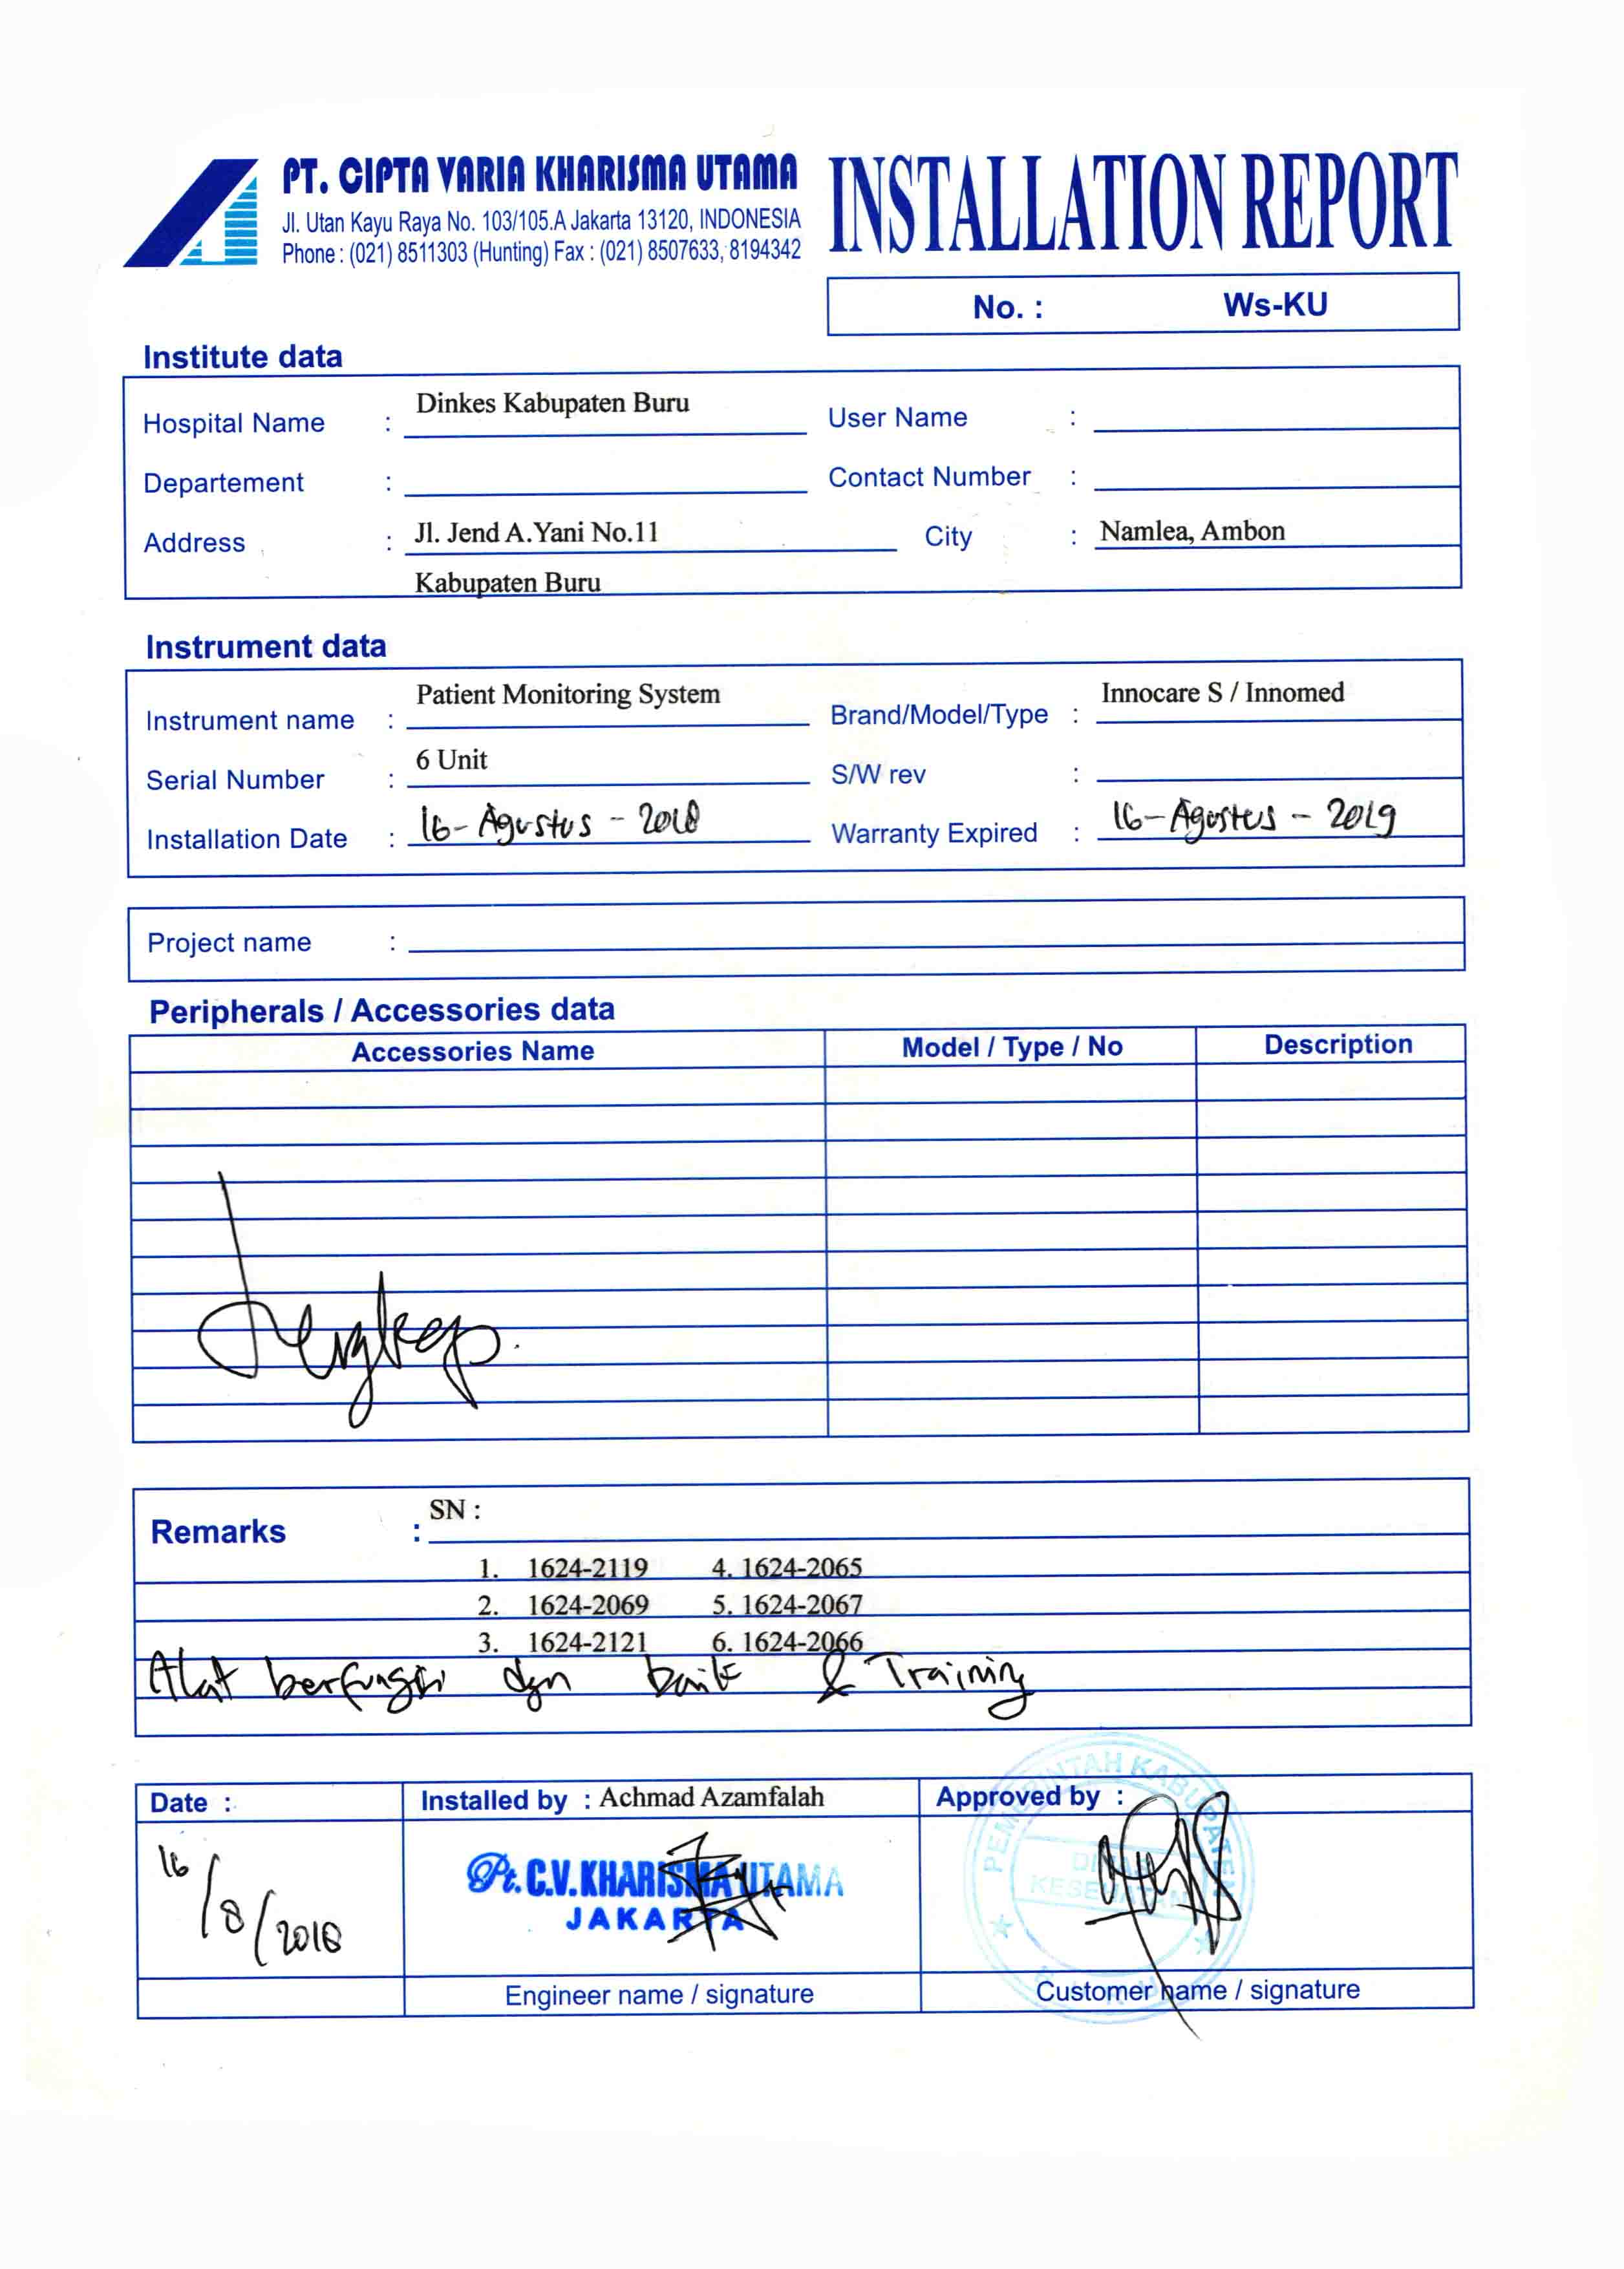 PT. CIPTA VARIA KHARISMA UTAMA
Jl. Utan Kayu Raya No. 103/105.A Jakarta 13120, INDONESIA
Phone : (021) 8511303 (Hunting) Fax : (021) 8507633, 8194342
INSTALLATION REPORT
No. : Ws-KU
Institute data
Hospital Name : Dinkes Kabupaten Buru User Name :
Departement : Contact Number :
Address : Jl. Jend A.Yani No.11 City : Namlea, Ambon
Kabupaten Buru
Instrument data
Instrument name : Patient Monitoring System Brand/Model/Type : Innocare S / Innomed
Serial Number : 6 Unit S/W rev :
Installation Date : 16-Agustus - 2018 Warranty Expired : 16-Agustus - 2019
Project name :
Peripherals / Accessories data
Accessories Name Model / Type / No Description
Lengkap.
Remarks : SN :
1. 1624-2119 4. 1624-2065
2. 1624-2069 5. 1624-2067
3. 1624-2121 6. 1624-2066
Alat berfungsi dgn baik & Training
Date : Installed by : Achmad Azamfalah Approved by :
16/8/2018
Pt. C.V. KHARISMA UTAMA
JAKARTA
PEMERINTAH KABUPATEN
DINAS
KESEHATAN
Engineer name / signature Customer name / signature